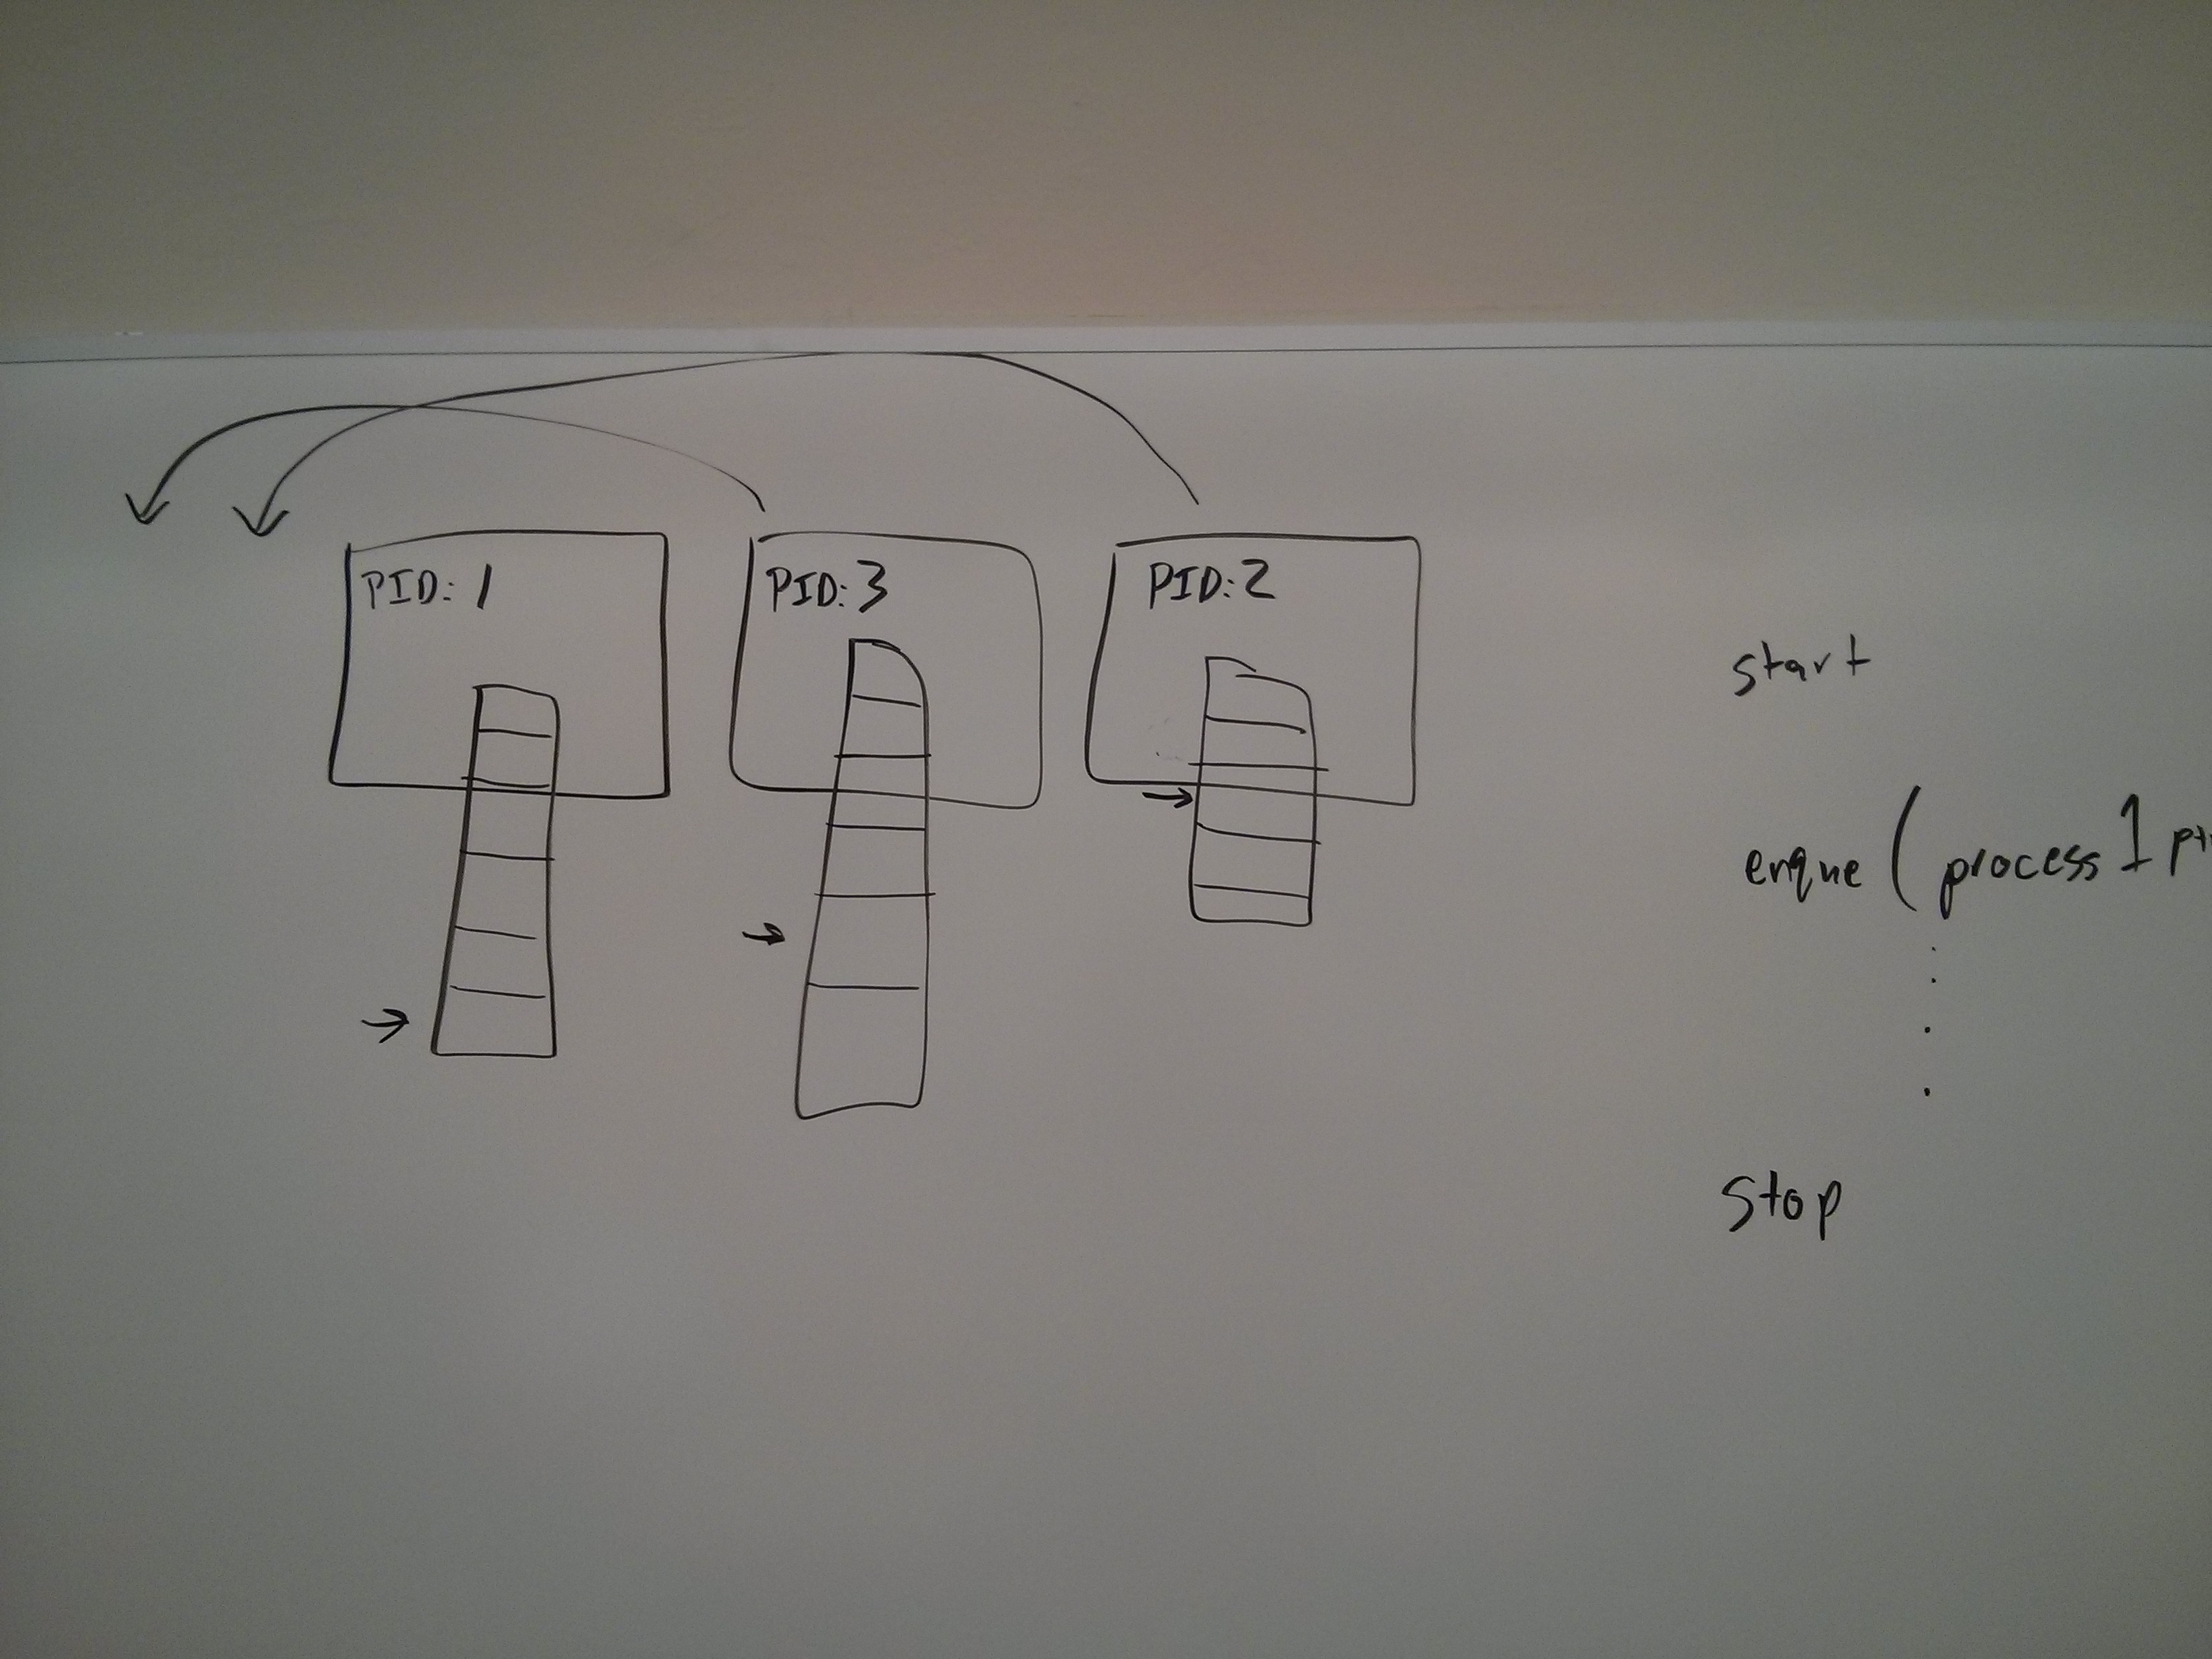 PID: 1
PID: 3
PID: 2
start
enque (process 1 pt
stop